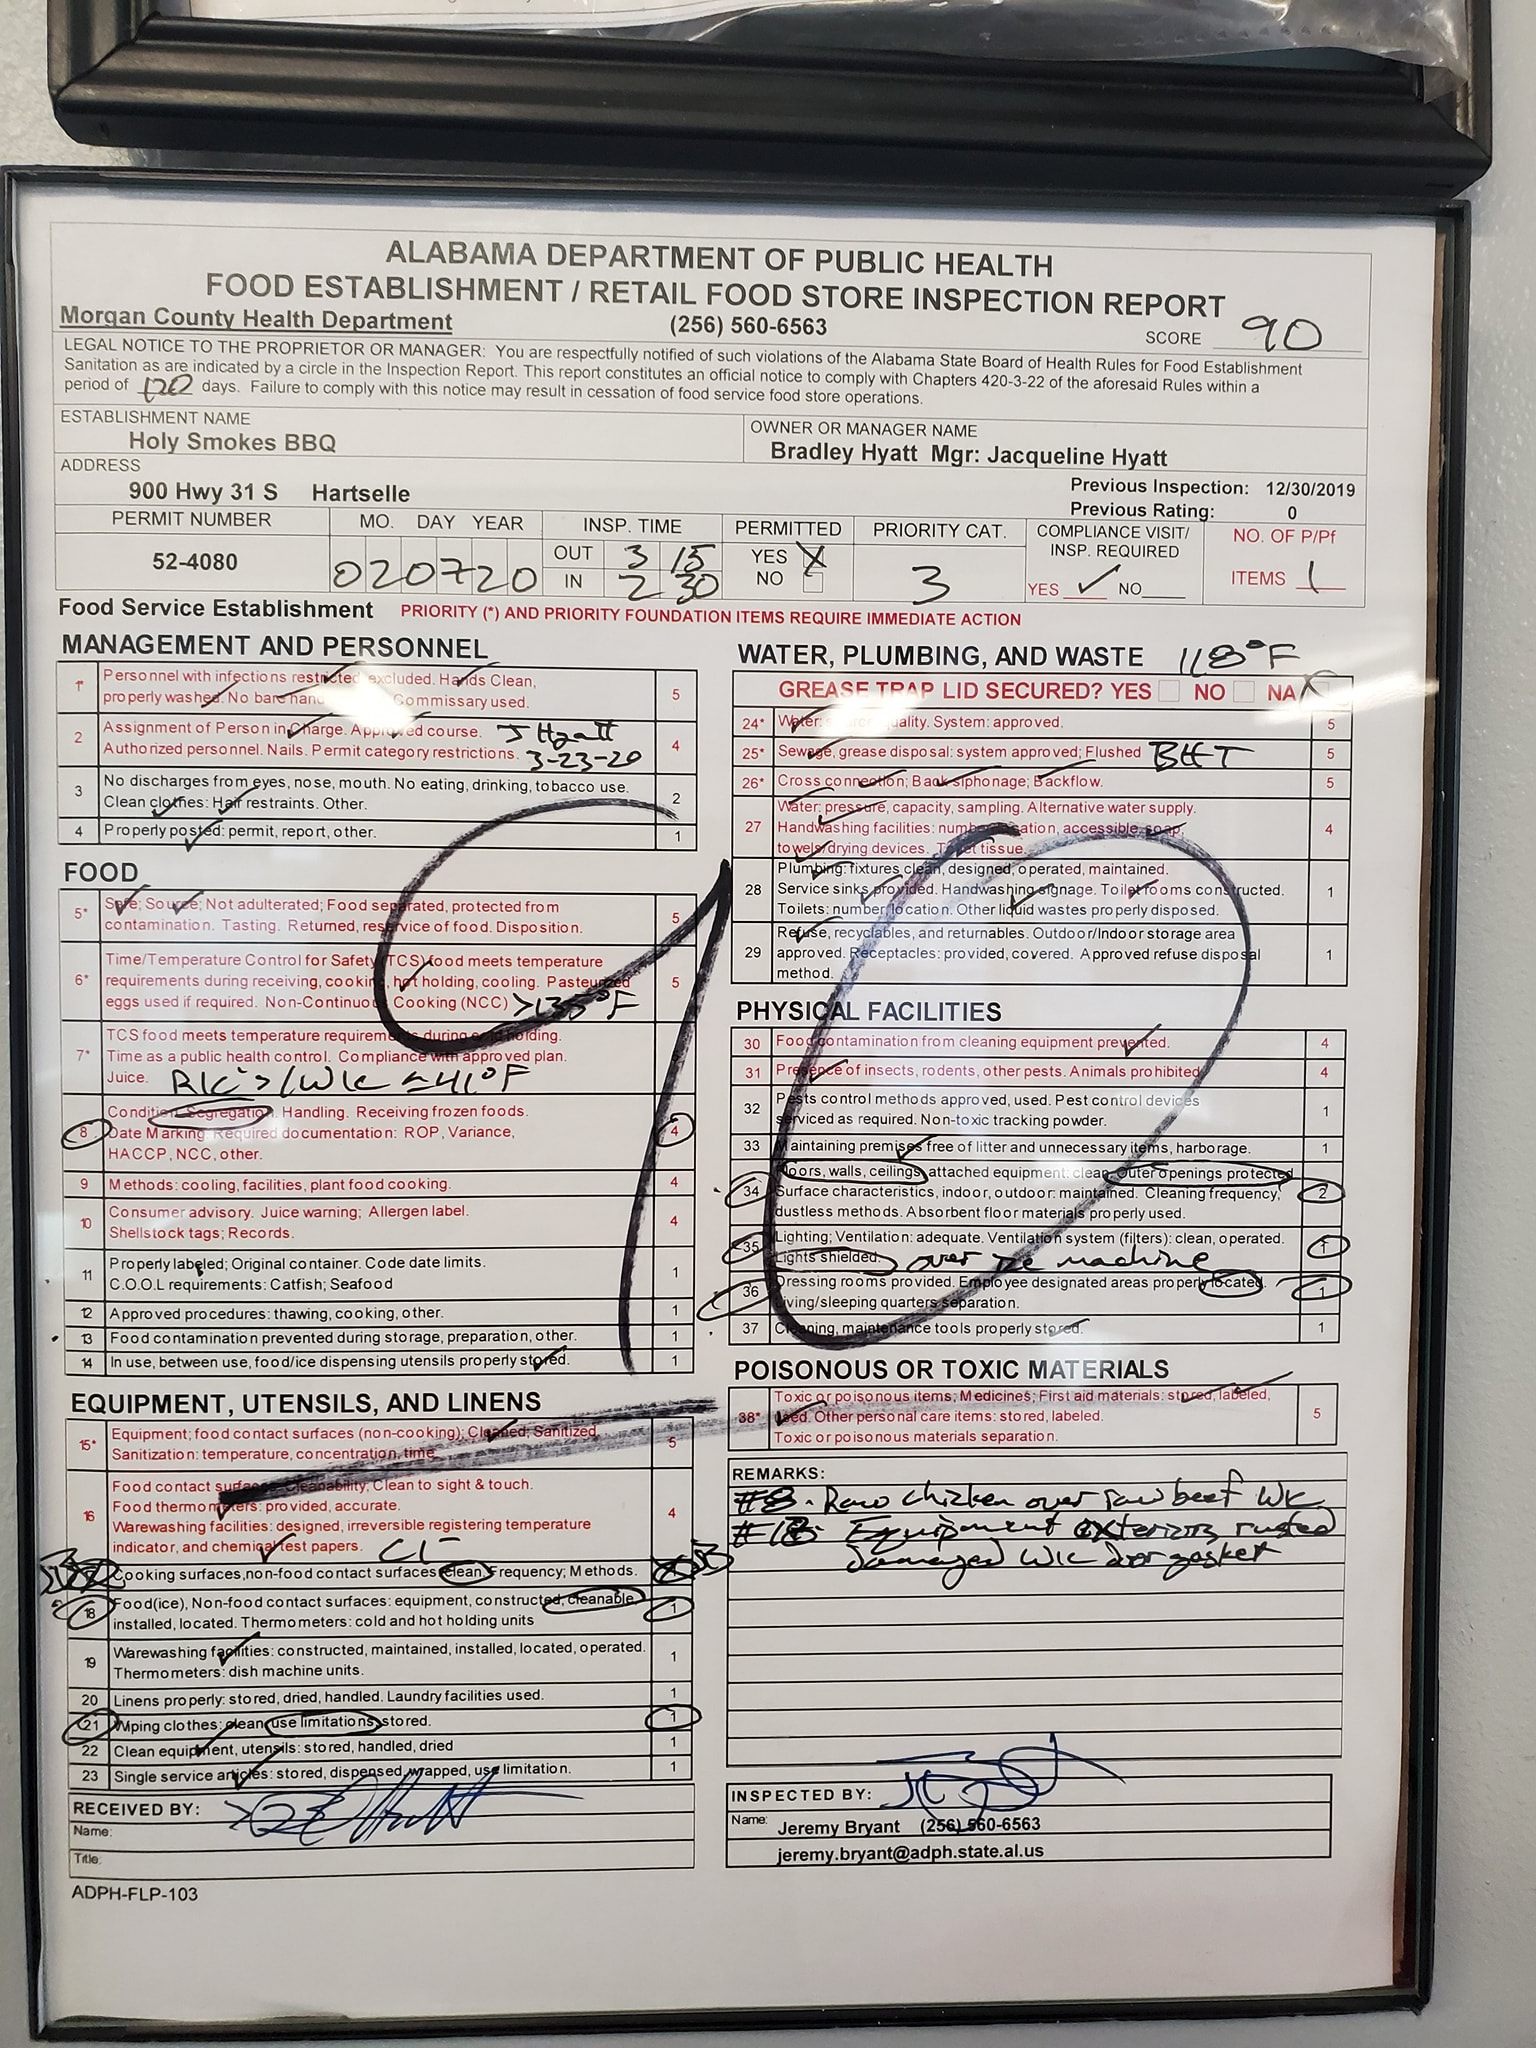 ALABAMA DEPARTMENT OF PUBLIC HEALTH
FOOD ESTABLISHMENT / RETAIL FOOD STORE INSPECTION REPORT
Morgan County Health Department (256) 560-6563 SCORE 90
LEGAL NOTICE TO THE PROPRIETOR OR MANAGER: You are respectfully notified of such violations of the Alabama State Board of Health Rules for Food Establishment
Sanitation as are indicated by a circle in the Inspection Report. This report constitutes an official notice to comply with Chapters 420-3-22 of the aforesaid Rules within a
period of days. Failure to comply with this notice may result in cessation of food service food store operations.
ESTABLISHMENT NAME
Holy Smokes BBQ
OWNER OR MANAGER NAME
Bradley Hyatt Mgr: Jacqueline Hyatt
ADDRESS
900 Hwy 31 S Hartselle
Previous Inspection: 12/30/2019
Previous Rating: 0
PERMIT NUMBER
52-4080
MO. DAY YEAR
020720
INSP. TIME
OUT 3 15
IN 2 30
PERMITTED
YES X
NO
PRIORITY CAT.
3
COMPLIANCE VISIT/
INSP. REQUIRED
YES ✓ NO
NO. OF P/Pf
ITEMS 1
Food Service Establishment PRIORITY (*) AND PRIORITY FOUNDATION ITEMS REQUIRE IMMEDIATE ACTION
MANAGEMENT AND PERSONNEL
1* Personnel with infections restricted excluded. Hands Clean, 5
properly washed. No bare hand Commissary used.
2 Assignment of Person in Charge. Approved course. J Hyatt 4
Authorized personnel. Nails. Permit category restrictions. 3-23-20
3 No discharges from eyes, nose, mouth. No eating, drinking, tobacco use. 2
Clean clothes: Hair restraints. Other.
4 Properly posted: permit, report, other. 1
FOOD
5* Safe; Source; Not adulterated; Food separated, protected from 5
contamination. Tasting. Returned, reservice of food. Disposition.
6* Time/Temperature Control for Safety (TCS) food meets temperature 5
requirements during receiving, cooking, hot holding, cooling. Pasteurized
eggs used if required. Non-Continuous Cooking (NCC) >135°F
7* TCS food meets temperature requirements during cold holding.
Time as a public health control. Compliance with approved plan.
Juice. 41°F
8 Condition. Segregation. Handling. Receiving frozen foods. 4
Date Marking. Required documentation: ROP, Variance,
HACCP, NCC, other.
9 Methods: cooling, facilities, plant food cooking. 4
10 Consumer advisory. Juice warning; Allergen label. 4
Shellstock tags; Records.
11 Properly labeled; Original container. Code date limits. 1
C.O.O.L requirements: Catfish; Seafood
12 Approved procedures: thawing, cooking, other. 1
13 Food contamination prevented during storage, preparation, other. 1
14 In use, between use, food/ice dispensing utensils properly stored. 1
EQUIPMENT, UTENSILS, AND LINENS
15* Equipment; food contact surfaces (non-cooking); Cleaned; Sanitized, 5
Sanitization: temperature, concentration, time.
16 Food contact surfaces Cleanability; Clean to sight & touch. 4
Food thermometers: provided, accurate.
Warewashing facilities: designed, irreversible registering temperature
indicator, and chemical test papers. Cl-
Cooking surfaces, non-food contact surfaces clean. Frequency; Methods.
18 Food(ice), Non-food contact surfaces: equipment, constructed, cleanable, 1
installed, located. Thermometers: cold and hot holding units
19 Warewashing facilities: constructed, maintained, installed, located, operated. 1
Thermometers: dish machine units.
20 Linens properly: stored, dried, handled. Laundry facilities used. 1
21 Wiping clothes: clean, use limitations, stored. 1
22 Clean equipment, utensils: stored, handled, dried 1
23 Single service articles: stored, dispensed, wrapped, use limitation. 1
RECEIVED BY:
Name:
Title:
ADPH-FLP-103
WATER, PLUMBING, AND WASTE 118°F
GREASE TRAP LID SECURED? YES NO NA X
24* Water: source, quality. System: approved. 5
25* Sewage, grease disposal: system approved; Flushed 5
26* Cross connection; Back siphonage; Backflow. 5
27 Water: pressure, capacity, sampling. Alternative water supply. 4
Handwashing facilities: number, location, accessible, soap,
towels/drying devices. Toilet tissue.
28 Plumbing: fixtures clean, designed, operated, maintained. 1
Service sinks provided. Handwashing signage. Toilet rooms constructed.
Toilets: number, location. Other liquid wastes properly disposed.
29 Refuse, recyclables, and returnables. Outdoor/Indoor storage area 1
approved. Receptacles: provided, covered. Approved refuse disposal
method.
PHYSICAL FACILITIES
30 Food contamination from cleaning equipment prevented. 4
31 Presence of insects, rodents, other pests. Animals prohibited. 4
32 Pests control methods approved, used. Pest control devices 1
serviced as required. Non-toxic tracking powder.
33 Maintaining premises free of litter and unnecessary items, harborage. 1
34 Floors, walls, ceilings, attached equipment: clean. Outer openings protected. 2
Surface characteristics, indoor, outdoor: maintained. Cleaning frequency,
dustless methods. Absorbent floor materials properly used.
35 Lighting; Ventilation: adequate. Ventilation system (filters): clean, operated. 1
Lights shielded. over ice machine
36 Dressing rooms provided. Employee designated areas properly located. 1
Living/sleeping quarters separation.
37 Cleaning, maintenance tools properly stored. 1
POISONOUS OR TOXIC MATERIALS
38* Toxic or poisonous items; Medicines; First aid materials: stored, labeled, 5
used. Other personal care items: stored, labeled.
Toxic or poisonous materials separation.
REMARKS:
#8- Raw chicken over raw beef WK
#18- Equipment exteriors rusted
damaged WK door gasket
INSPECTED BY:
Name: Jeremy Bryant (256) 560-6563
jeremy.bryant@adph.state.al.us
90